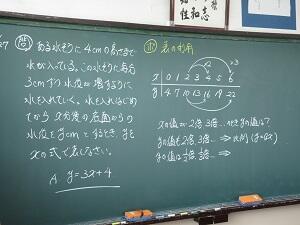 問 ある水そうに 4cmの高さまで
水が入っている。この水そうに毎分
3cmずつ水位が増すように
水を入れていく。水を入れはじめて
から x分後の底面からの
水位をycmとするとき、yを
xの式で表しなさい。
A y=3x+4
表の利用
×2
×3
x 0 1 2 3 4 5 6
y 4 7 10 13 16 19 22
xの値が2倍、3倍…のときyの値は?
yの値も2倍、3倍… ⇒ 比例 (y=ax)
yの値は 1/2倍、1/3倍… ⇒